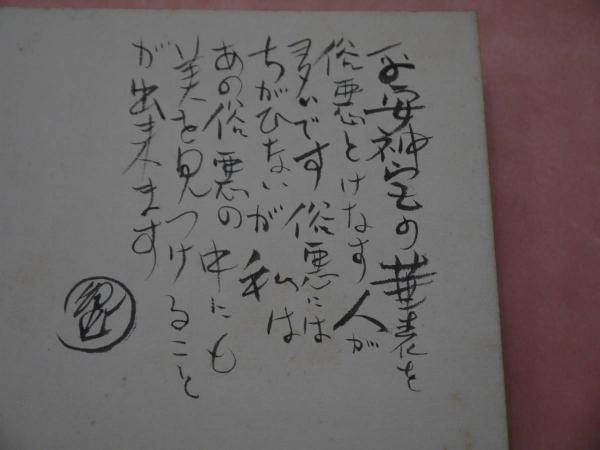 平安神宮の華表を
俗悪とけなす人が
多いです俗悪には
ちがひないが私は
あの俗悪の中にも
美を見つけること
が出来ます